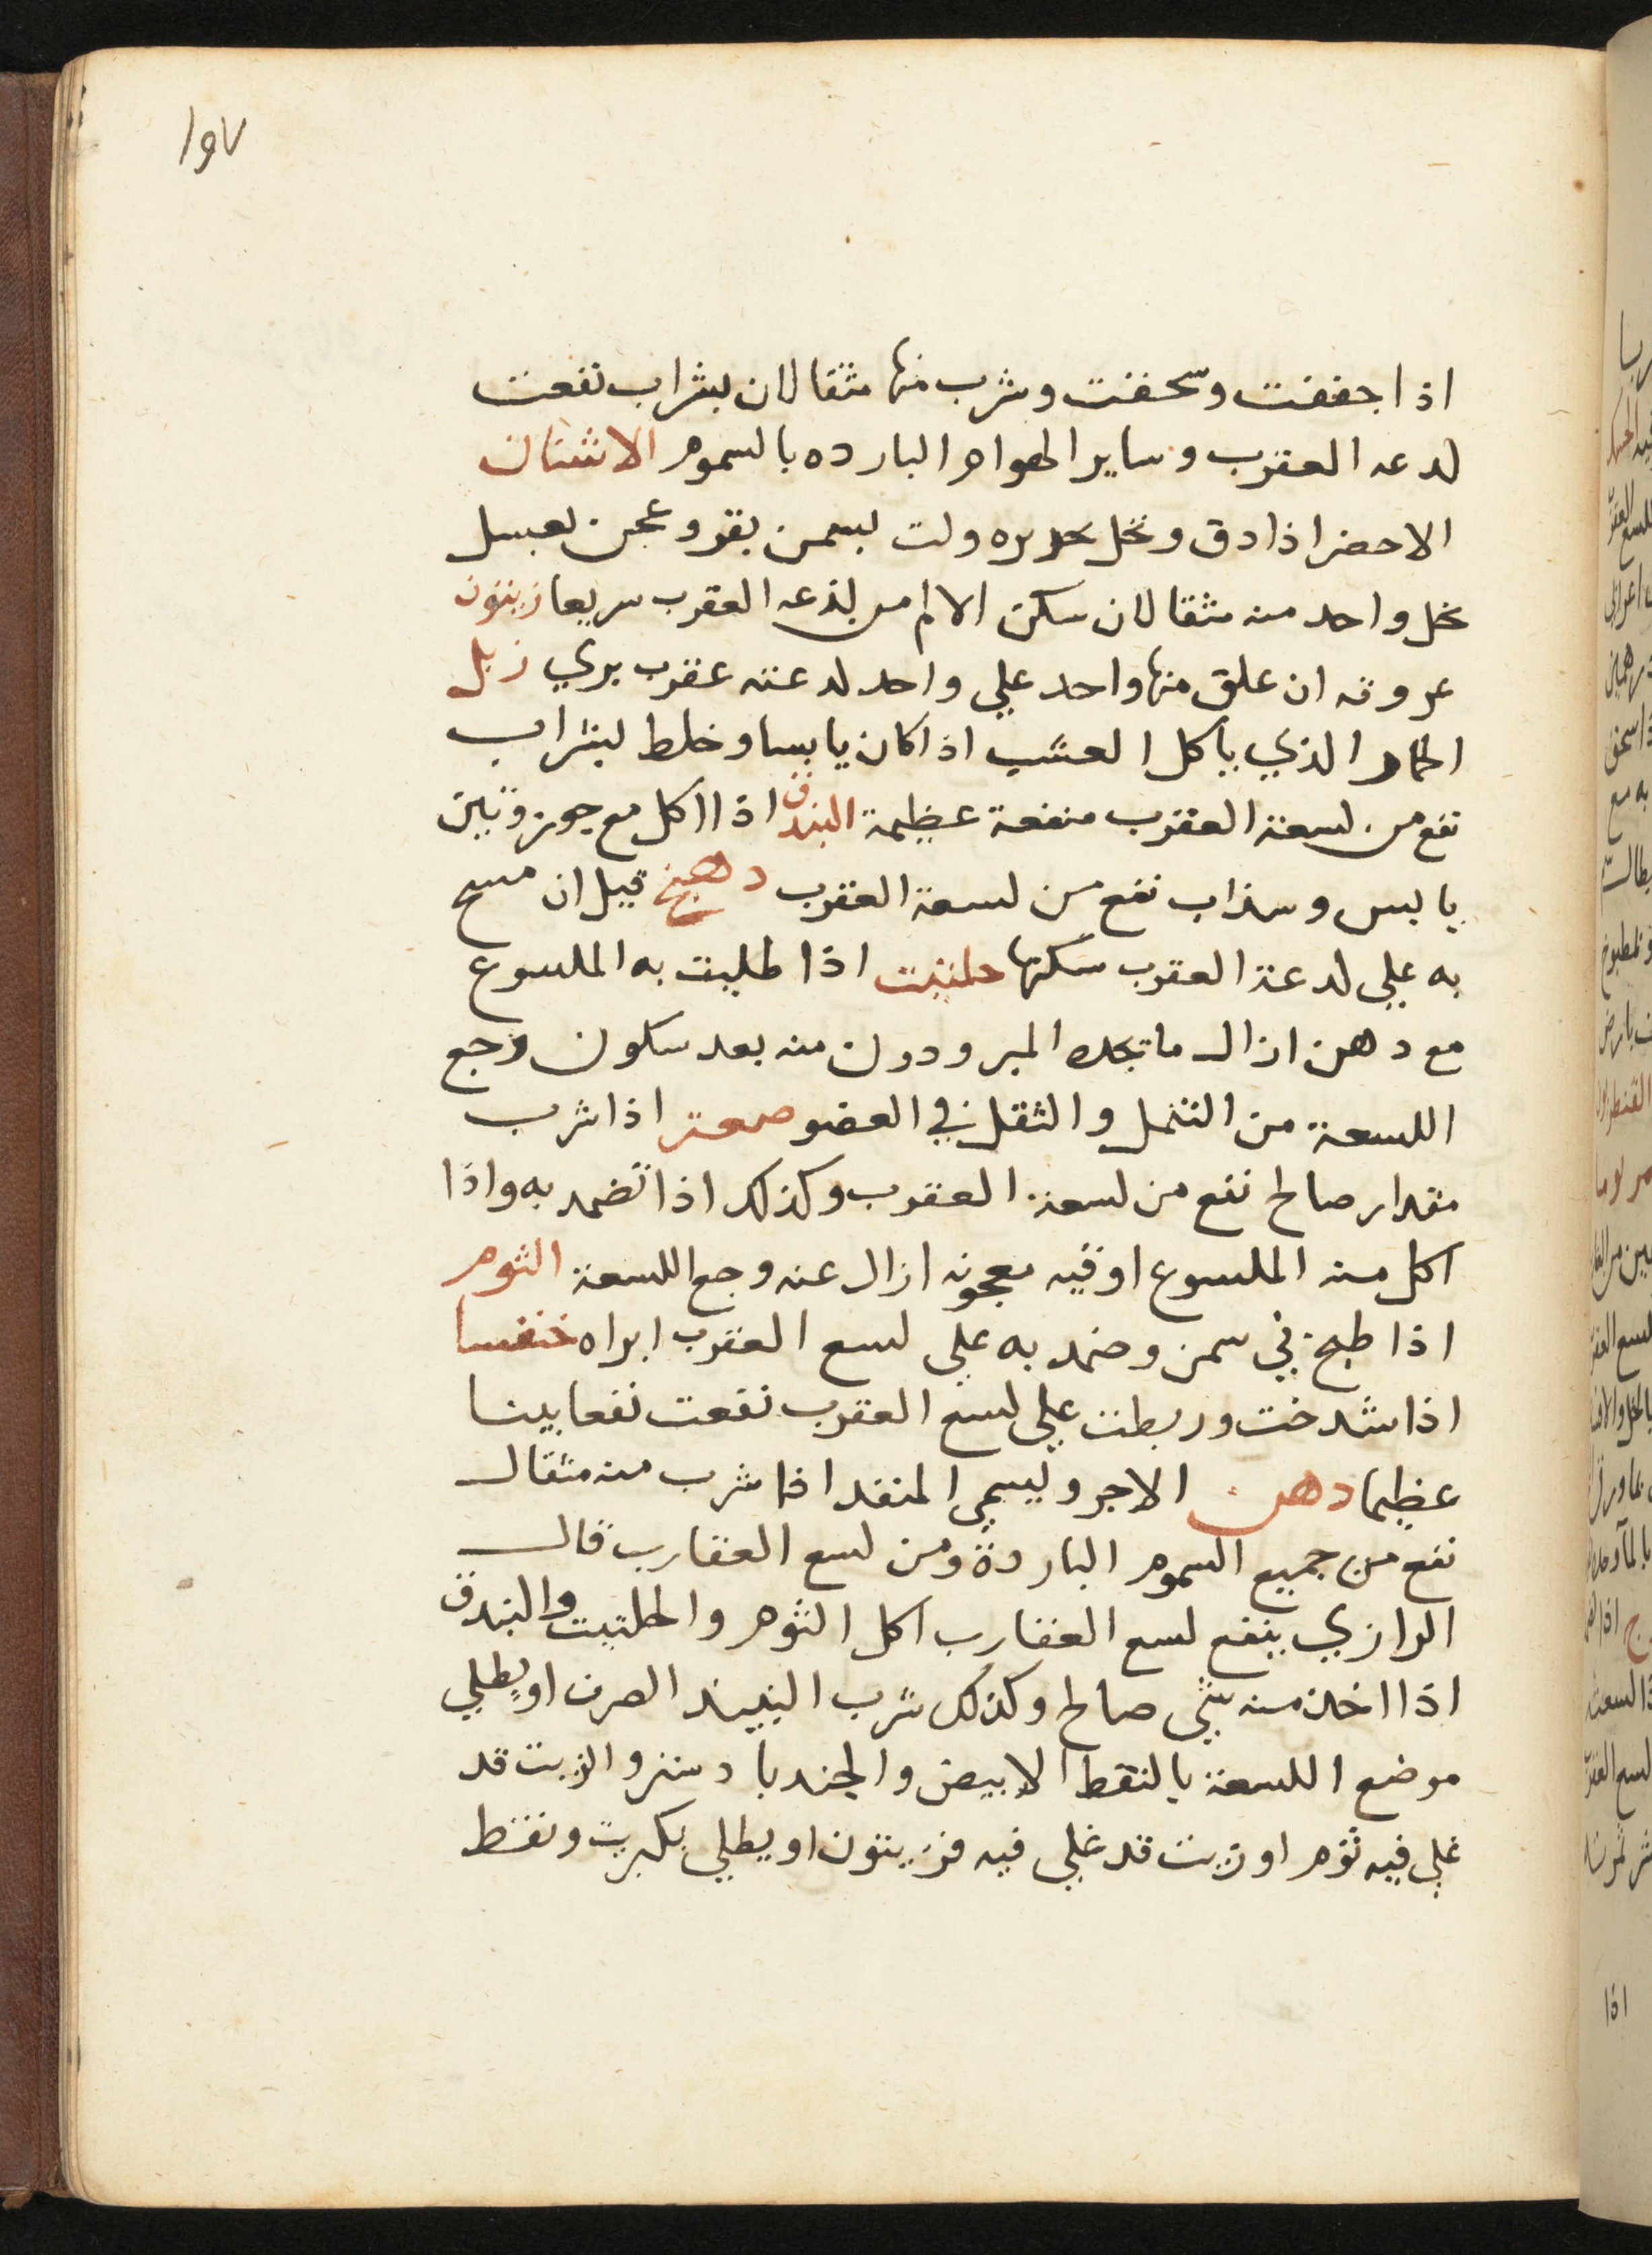 ١٥٧
اذا جففت وسحقت وشرب منها مثقالان بشراب نفعت
لدعه العقرب وساير الهوام البارده بالسموم الاشنان
الاخضر اذا دق ونخل بحريره ولت بسمن بقر وعجن بعسل
نحل واحد منه مثقالان سكن الالم من لذعه العقرب سريعا زيتون
عروقه ان علق منها واحد علي واحد لدعته عقرب بري زبل
الحمار الذي ياكل العشب اذا كان يابسا وخلط بشراب
نفع من لسعة العقرب منفعة عظيمة البندق اذا اكل مع جوز وتين
يابس وسذاب نفع من لسعة العقرب دهنج قيل ان مسح
به علي لدعة العقرب سكنها حلتيت اذا طليت به الملسوع
مع دهن ازال ما تجده المبرودون منه بعد سكون وجع
اللسعة من التنمل والثقل في العضو صعتر اذا شرب
مقدار صالح نفع من لسعة العقرب وكذلك اذا تضمد به واذا
اكل منه الملسوع اوقيه معجونه ازال عنه وجع اللسعة الثوم
اذا طبخ في سمن وضمد به علي لسع العقرب ابراه خنفسا
اذا شدخت وربطت علي لسع العقرب نفعت نفعا بينا
عظيما دهن الاجر ويسمي المنفد اذا شرب منه مثقال
نفع من جميع السموم الباردة ومن لسع العقارب قال
الرازي ينفع لسع العقارب اكل الثوم والحلتيت والبندق
اذا اخذ منه شي صالح وكذلك شرب النبيذ الصرف او يطلي
موضع اللسعة بالنفط الابيض والجندبادستر والزيت قد
غلي فيه ثوم او زيت قد غلي فيه فربيون او يطلي بكبريت ونفط